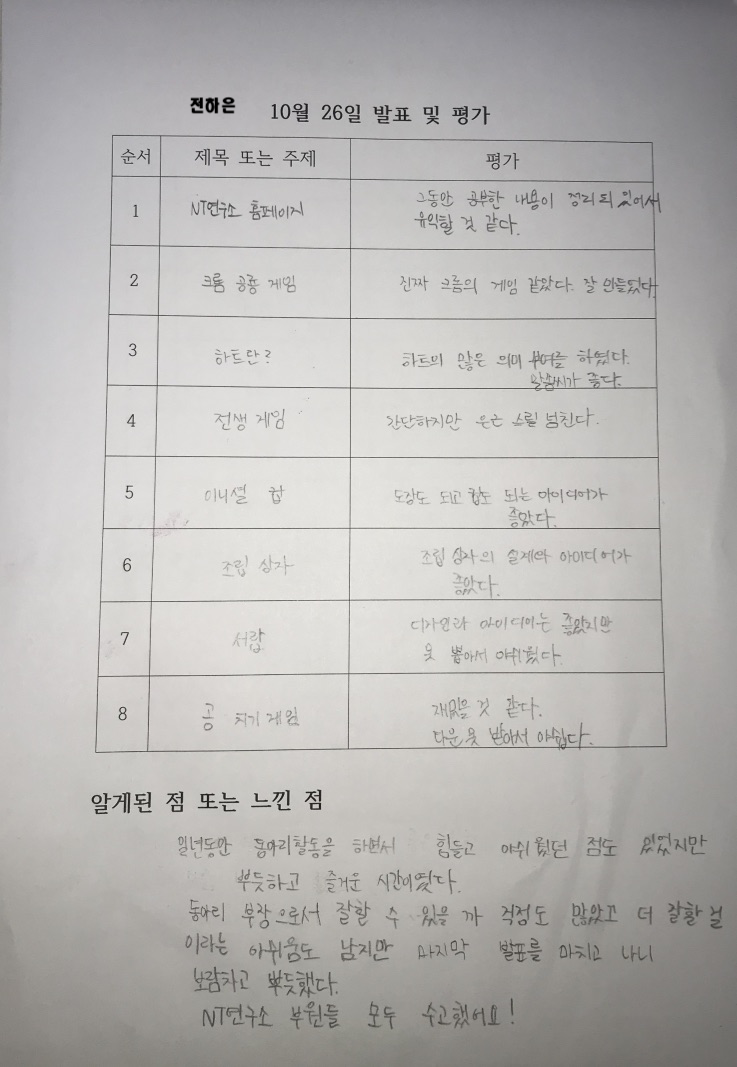 전하은 10월 26일 발표 및 평가
순서 제목 또는 주제 평가
1 NT연구소 홈페이지 그동안 공부한 내용이 정리되 있어서
유익할 것 같다.
2 크롬 공룡 게임 진짜 크롬의 게임 같았다. 잘 만들었다.
3 하트란? 하트의 많은 의미 부여를 하였다.
말솜씨가 좋다.
4 전생 게임 간단하지만 은근 스릴 넘친다.
5 이니셜 컵 도장도 되고 컵도 되는 아이디어가
좋았다.
6 조립 상자 조립 상자의 설계와 아이디어가
좋았다.
7 서랍 디자인과 아이디어는 좋았지만
못 뽑아서 아쉬웠다.
8 공 치기 게임 재밌을 것 같다.
다운 못 받아서 아쉽다.
알게된 점 또는 느낀 점
일년동안 동아리활동을 하면서 힘들고 아쉬웠던 점도 있었지만
뿌듯하고 즐거운 시간이였다.
동아리 부장으로서 잘할 수 있을 까 걱정도 많았고 더 잘할 걸
이라는 아쉬움도 남지만 마지막 발표를 마치고 나니
보람차고 뿌듯했다.
NT연구소 부원들 모두 수고했어요!